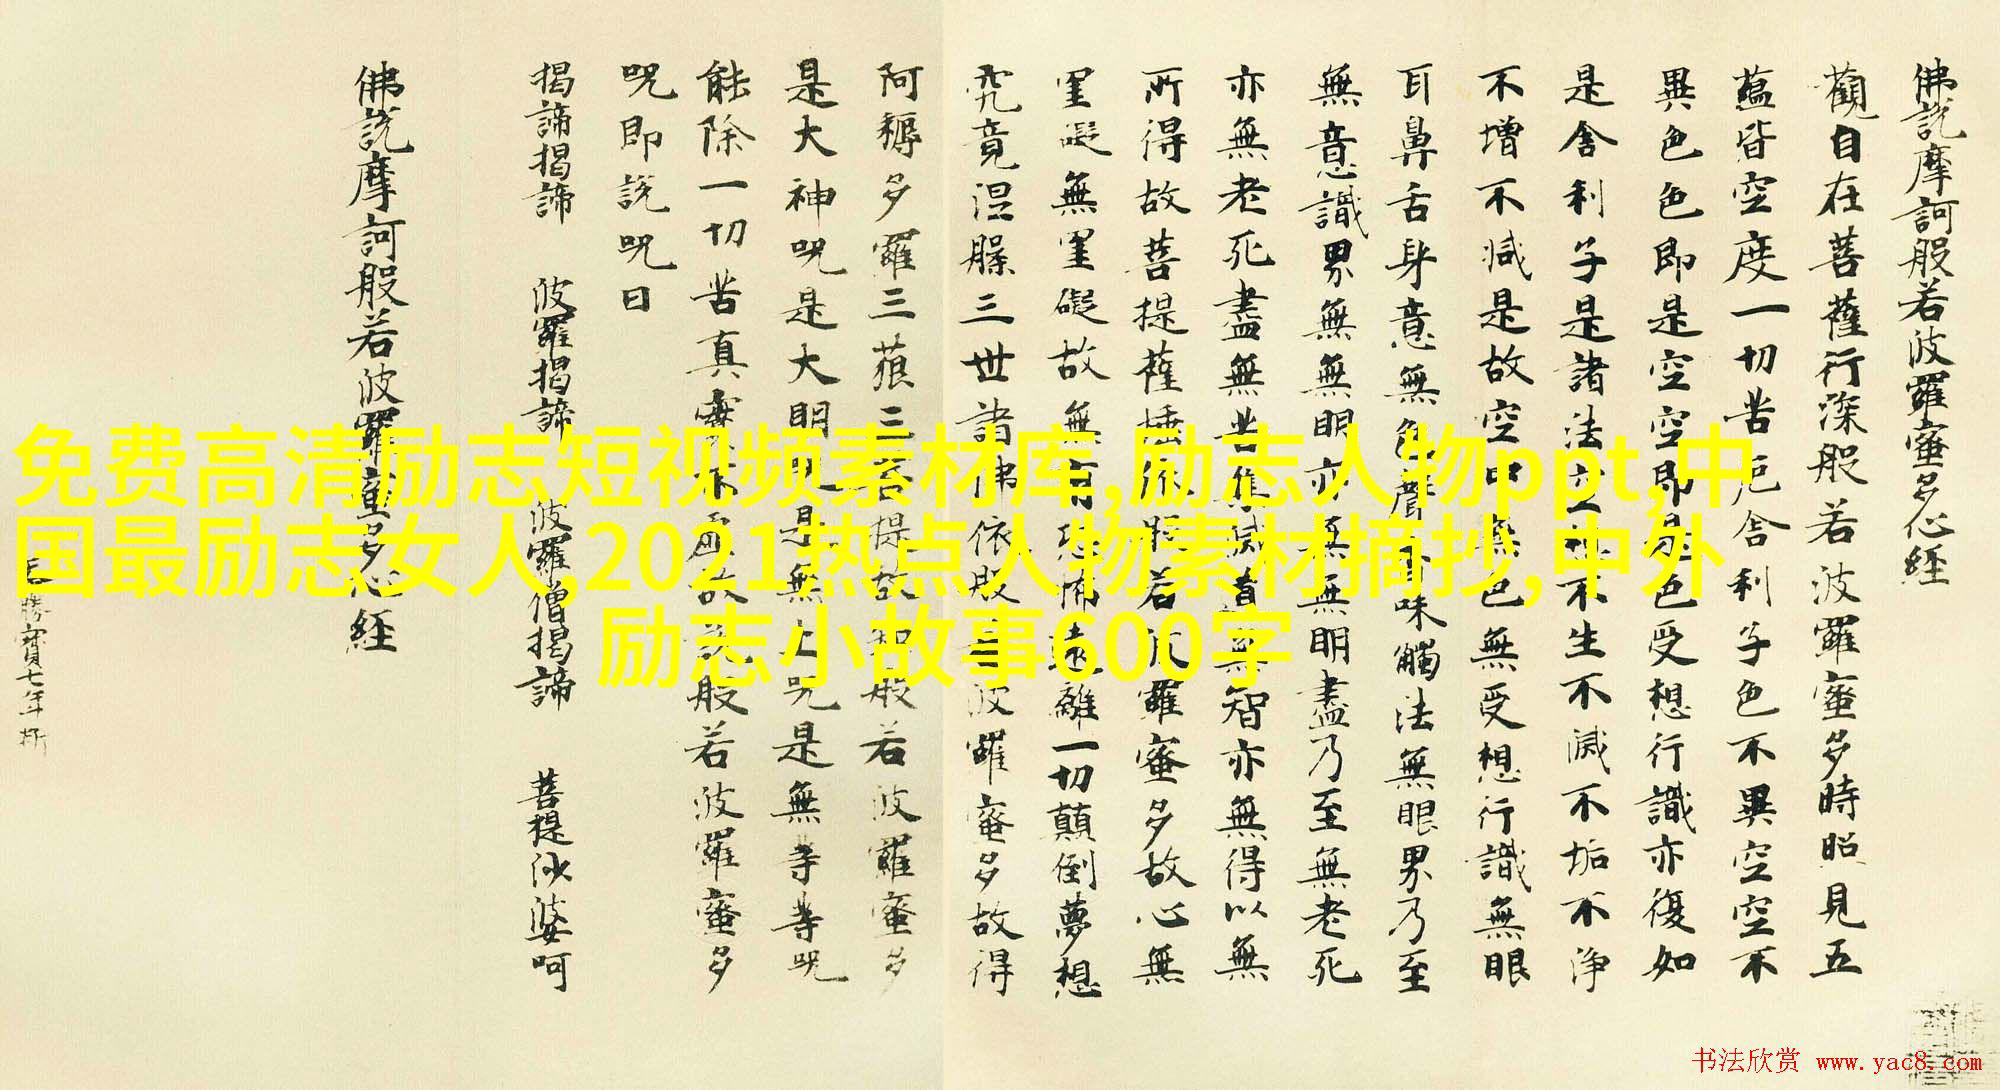 佛說摩訶般若波羅蜜多心經
觀自在菩薩行深般若波羅蜜多時照見五
蘊皆空度一切苦厄舍利子色不異空空不
異色色即是空空即是色受想行識亦復如
是舍利子是諸法空相不生不滅不垢不淨
不增不減是故空中無色無受想行識無眼
耳鼻舌身意無色聲香味觸法無眼界乃至
無意識界無無明亦無無明盡乃至無老死
亦無老死盡無苦集滅道無智亦無得以無
所得故菩提薩埵依般若波羅蜜多故心無
罣礙無罣礙故無有恐怖遠離一切顛倒夢想
究竟涅槃三世諸佛依般若波羅蜜多故得
阿耨多羅三藐三菩提故知般若波羅蜜多
是大神咒是大明咒是無上咒是無等等咒
能除一切苦真實不虛故說般若波羅蜜多
咒即說咒曰
揭諦揭諦 波羅揭諦 波羅僧揭諦 菩提沙婆呵
佛說摩訶般若波羅蜜多心經
勝寶七年
免费高清励志短视频素材库,励志人物ppt,中
国最励志女人,2021热点人物素材摘抄,中外
励志小故事600字
书法欣赏 www.yac8.com